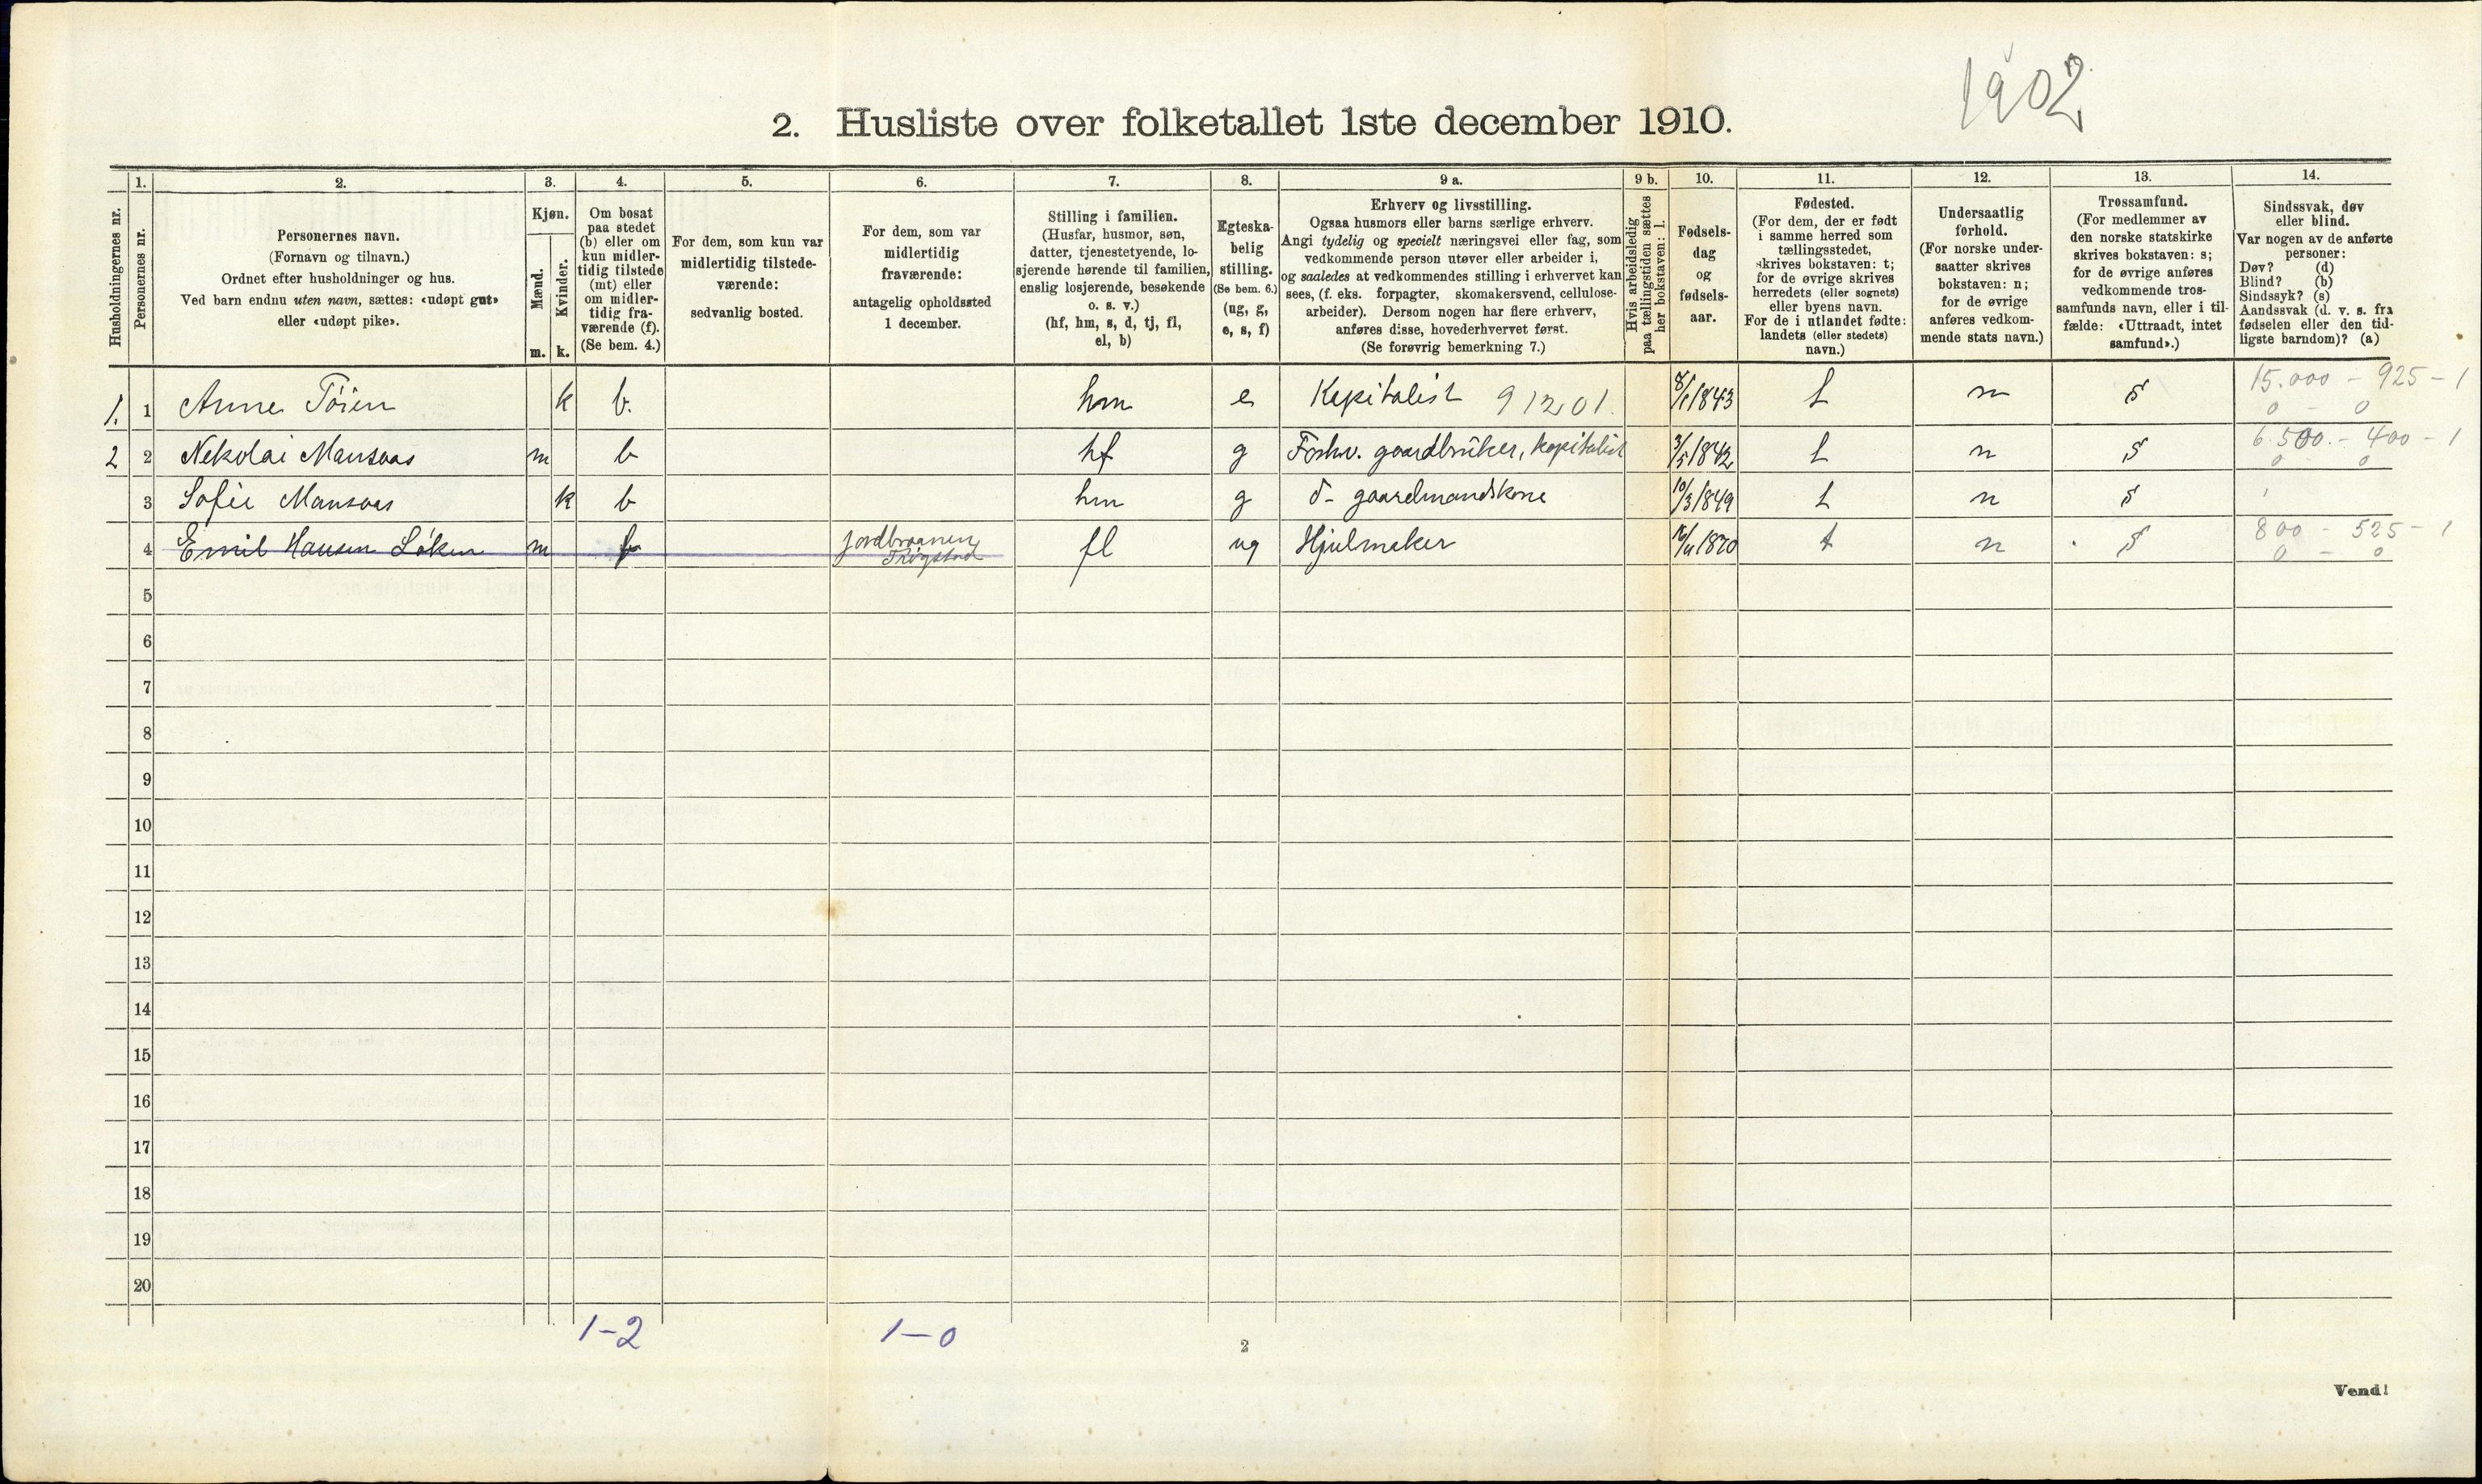 1902
2. Husliste over folketallet 1ste december 1910.
Husholdningernes nr.
1.
Personernes nr.
2.
Personernes navn.
(Fornavn og tilnavn.)
Ordnet efter husholdninger og hus.
Ved barn endnu uten navn, sættes: «udøpt gut»
eller «udøpt pike».
3.
Kjøn.
Mænd.
m.
Kvinder.
k.
4.
Om bosat
paa stedet
(b) eller om
kun midler-
tidig tilstede
(mt) eller
om midler-
tidig fra-
værende (f).
(Se bem. 4.)
5.
For dem, som kun var
midlertidig tilstede-
værende:
sedvanlig bosted.
6.
For dem, som var
midlertidig
fraværende:
antagelig opholdssted
1 december.
7.
Stilling i familien.
(Husfar, husmor, søn,
datter, tjenestetyende, lo-
sjerende hørende til familien,
enslig losjerende, besøkende
o. s. v.)
(hf, hm, s, d, tj, fl,
el, b)
8.
Egteska-
belig
stilling.
(Se bem. 6.)
(ug, g,
e, s, f)
9 a.
Erhverv og livsstilling.
Ogsaa husmors eller barns særlige erhverv.
Angi tydelig og specielt næringsvei eller fag, som
vedkommende person utøver eller arbeider i,
og saaledes at vedkommendes stilling i erhvervet kan
sees, (f. eks. forpagter, skomakersvend, cellulose-
arbeider). Dersom nogen har flere erhverv,
anføres disse, hovederhvervet først.
(Se forøvrig bemerkning 7.)
9 b.
Hvis arbeidsledig
paa tællingstiden sættes
her bokstaven: l.
10.
Fødsels-
dag
og
fødsels-
aar.
11.
Fødested.
(For dem, der er født
i samme herred som
tællingsstedet,
skrives bokstaven: t;
for de øvrige skrives
herredets (eller sognets)
eller byens navn.
For de i utlandet fødte:
landets (eller stedets)
navn.)
12.
Undersaatlig
forhold.
(For norske under-
saatter skrives
bokstaven: n;
for de øvrige
anføres vedkom-
mende stats navn.)
13.
Trossamfund.
(For medlemmer av
den norske statskirke
skrives bokstaven: s;
for de øvrige anføres
vedkommende tros-
samfunds navn, eller i til-
fælde: «Uttraadt, intet
samfund».)
14.
Sindssvak, døv
eller blind.
Var nogen av de anførte
personer:
Døv? (d)
Blind? (b)
Sindssyk? (s)
Aandssvak (d. v. s. fra
fødselen eller den tid-
ligste barndom)? (a)
1. 1 Anne Töien k b. hm e Kapitalist 91201. 8/1 1843 t n s 15.000 - 925 - 1
0 - 0
2 2 Nekolai Mansaas m b hf g Forhv. gaardbruker, kapitalist 3/5 1842 t n s 6.500. - 400 - 1
0 - 0
3 Sofie Mansaas k b hm g d- gaardmandskone 10/3 1849 t n s
4 Emil Hansen Løken m f Trøgstad fl ug Hjulmaker 1870 t n s 800 - 525 - 1
0 - 0
5
6
7
8
9
10
11
12
13
14
15
16
17
18
19
20
1-2 1-0
2
Vend!